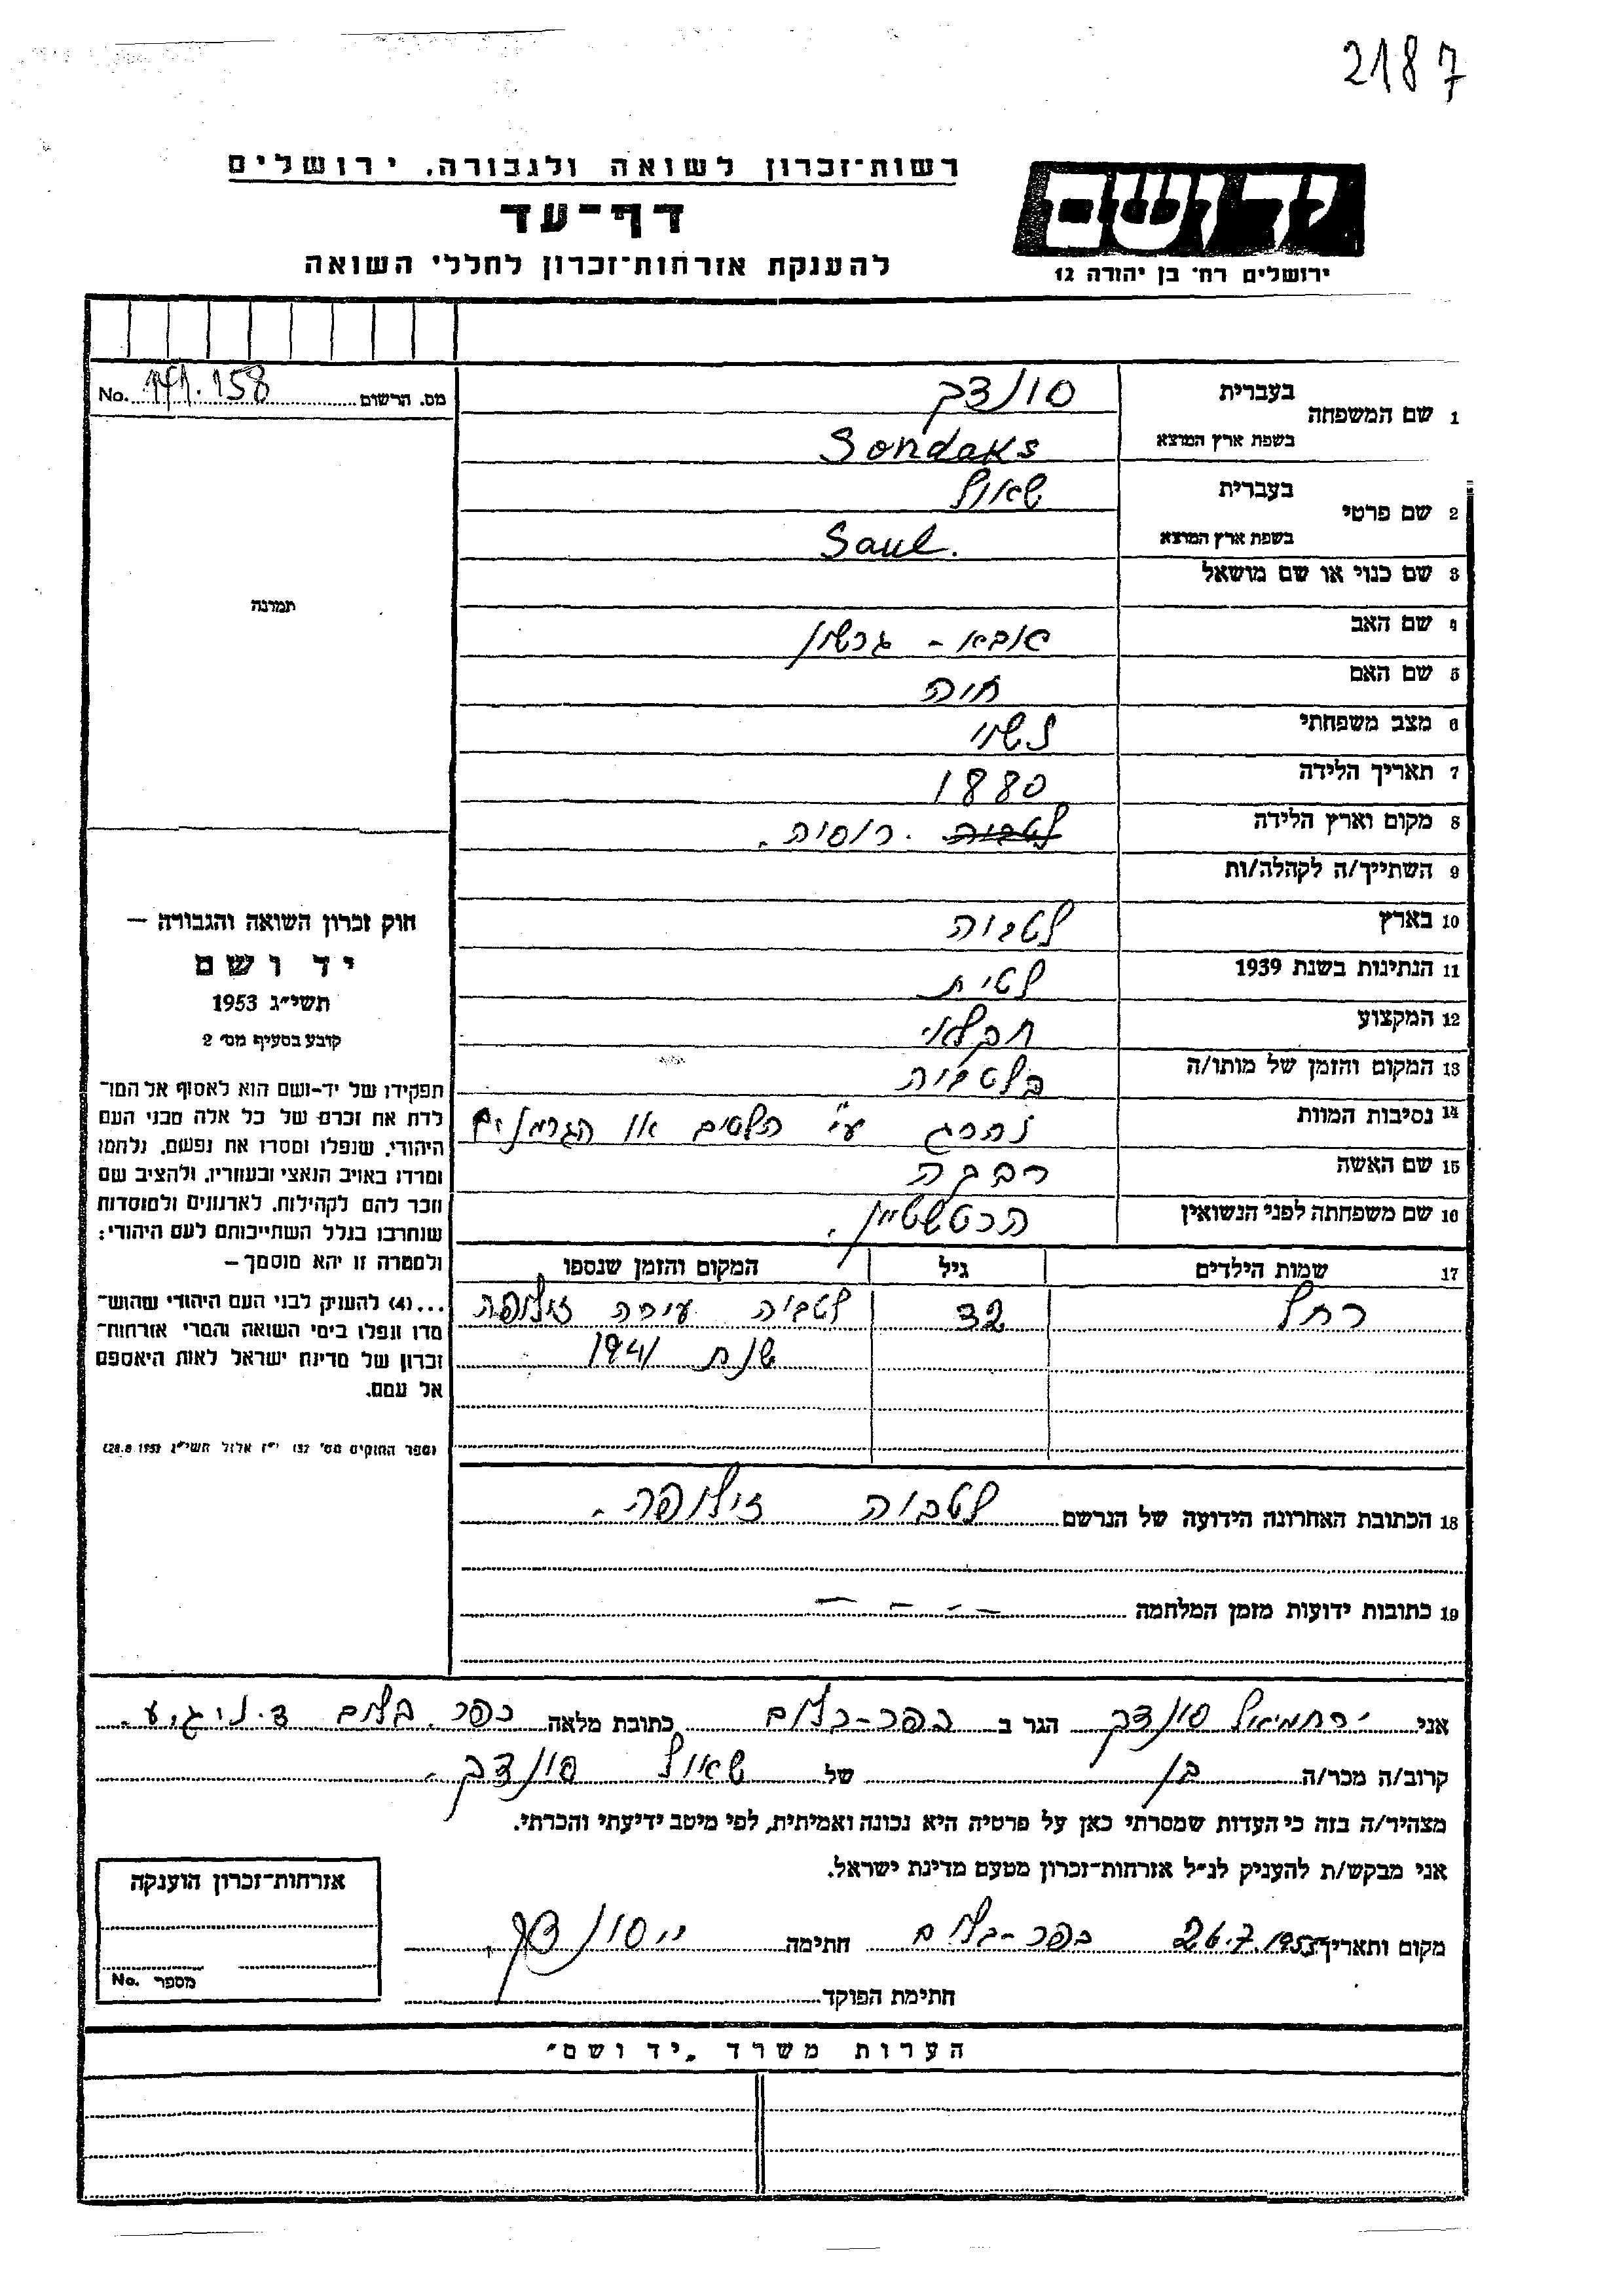 2187
רשות־זכרון לשואה ולגבורה, ירושלים
דף־עד
להענקת אזרחות־זכרון לחללי השואה
יד ושם
ירושלים רח׳ בן יהודה 12
מס. הרשום 141.158 No.
1 שם המשפחה בעברית סונדק
בשפת ארץ המוצא Sondaks
2 שם פרטי בעברית שאול
בשפת ארץ המוצא Saul.
3 שם כנוי או שם מושאל
4 שם האב אבא - גרשון
5 שם האם חיה
6 מצב משפחתי נשוי
7 תאריך הלידה 1880
8 מקום וארץ הלידה לטביה . רוסיה.
9 השתייך/ה לקהלה/ות
10 בארץ לטביה
11 הנתינות בשנת 1939 לטית
12 המקצוע חקלאי
13 המקום והזמן של מותו/ה בלטביה
14 נסיבות המוות נהרג ע״י הלטים או הגרמנים
15 שם האשה רבקה
16 שם משפחתה לפני הנשואין
17 שמות הילדים גיל המקום והזמן שנספו
רחל 32 לטביה עירה זילופה
שנת 1941
18 הכתובת האחרונה הידועה של הנרשם לטביה זילופה.
19 כתובות ידועות מזמן המלחמה - - - -
תמונה
חוק זכרון השואה והגבורה —
יד ושם
תשי״ג 1953
קובע בסעיף מס׳ 2
תפקידו של יד־ושם הוא לאסוף אל המו־
לדת את זכרם של כל אלה מבני העם
היהודי, שנפלו ומסרו את נפשם, נלחמו
ומרדו באויב הנאצי ובעוזריו, ולהציב שם
וזכר להם לקהילות, לארגונים ולמוסדות
שנחרבו בגלל השתייכותם לעם היהודי;
ולמטרה זו יהא מוסמך —
...(4) להעניק לבני העם היהודי שהוש־
מדו ונפלו בימי השואה והמרי אזרחות־
זכרון של מדינת ישראל לאות היאספם
אל עמם.
(ספר החוקים מס׳ 132 י״ז אלול תשי״ג 28.8.1953)
אני ירחמיאל סונדק הגר ב כפר-בלום כתובת מלאה כפר בלום ד.נ.
קרוב/ה מכר/ה בן של שאול סונדק.
מצהיר/ה בזה כי העדות שמסרתי כאן על פרטיה היא נכונה ואמיתית, לפי מיטב ידיעתי והכרתי.
אני מבקש/ת להעניק לנ״ל אזרחות־זכרון מטעם מדינת ישראל.
מקום ותאריך 26.7. כפר-בלום חתימה י. סונדק.
חתימת הפוקד
אזרחות־זכרון הוענקה
מספר No.
הערות משרד „יד ושם״